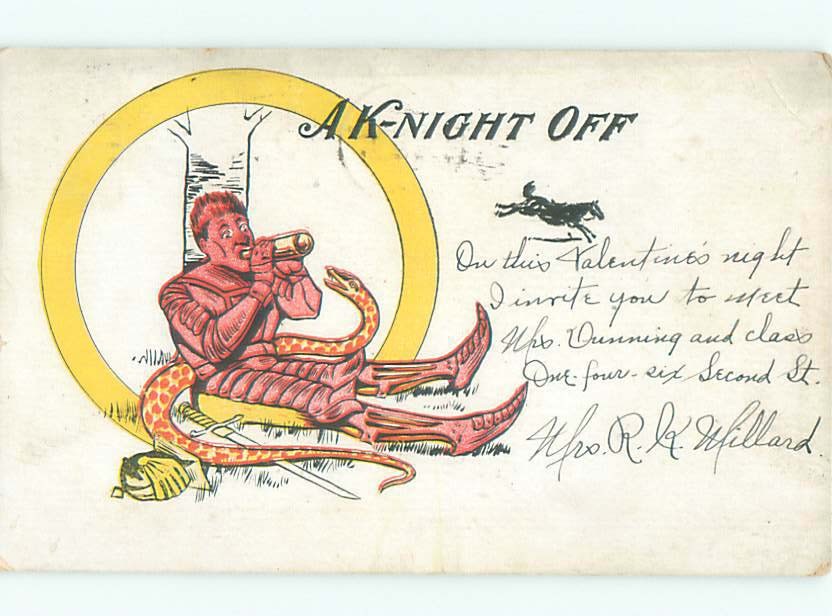 A K-NIGHT OFF
On this Valentine's night
I invite you to meet
Mrs. Dunning and class
One-four-six Second St.
Mrs. R. K. Millard.